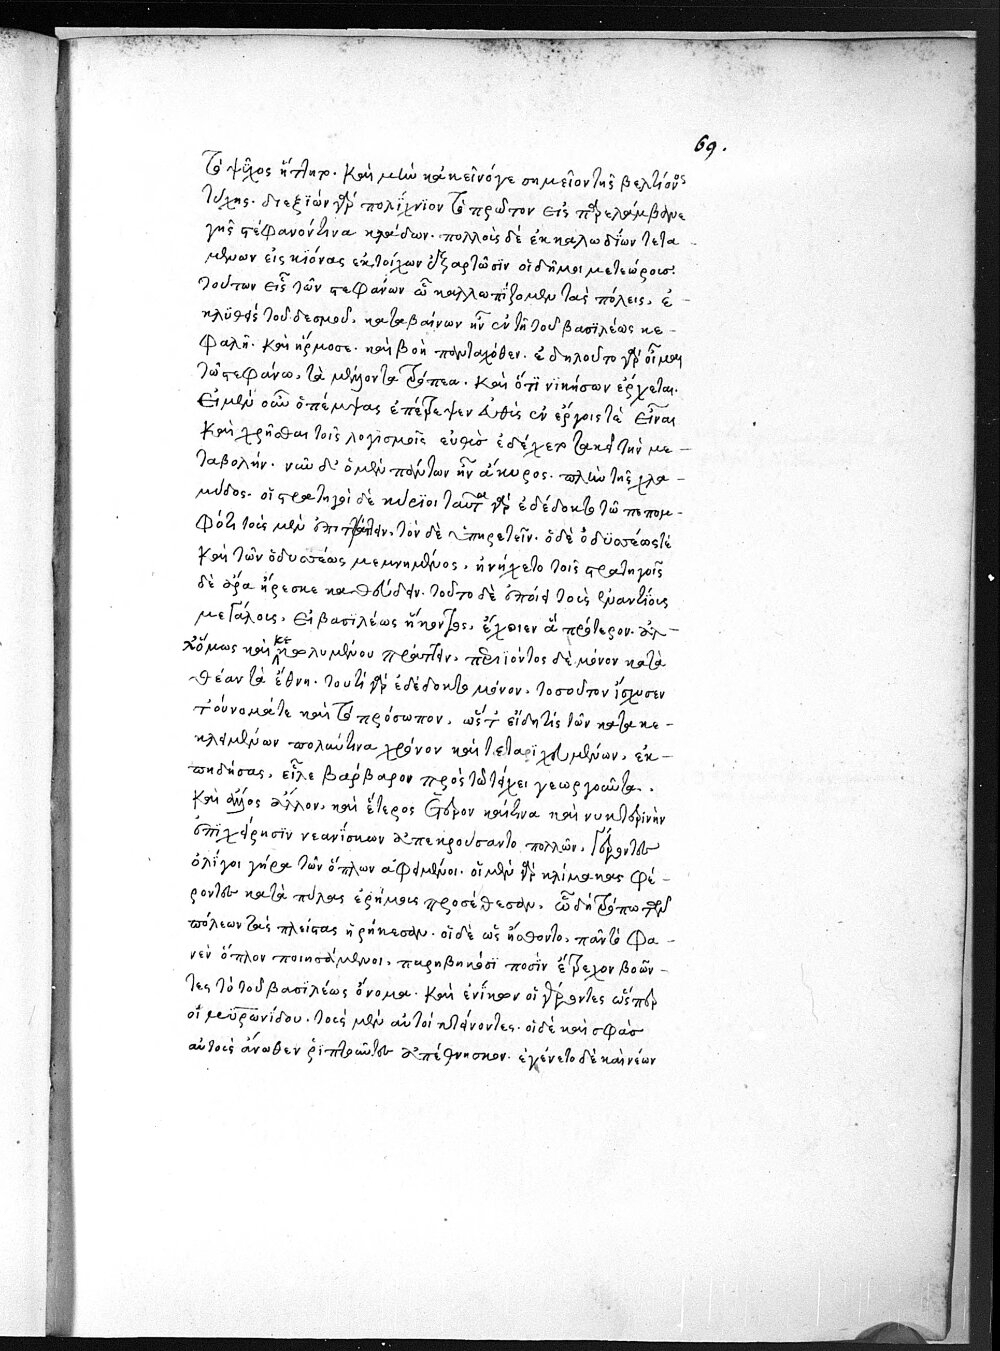 69.
τὸ ψῦχος ἥπτετο. καὶ μὴν κἀκεῖνό γε σημεῖον τῆς βελτίονος
τύχης. διεξιὼν γὰρ πολίχνιον τὸ πρῶτον εἰς παρελάμβανε
γῆς στέφανόν τινα κλάδων. πολλοὺς δὲ ἐκ καλωδίων τετα
μένων εἰς κίονας ἐκ τοίχων ἐξαρτῶσιν οἱ δῆμοι μετεώρους.
τούτων εἷς τῶν στεφάνων ᾧ καλλωπίζομεν τὰς πόλεις, ἐ-
κλυθεὶς τοῦ δεσμοῦ, καταβαίνων ἦν ἐν τῇ τοῦ βασιλέως κε-
φαλῇ. καὶ ἥρμοσε. καὶ βοὴ πανταχόθεν. ἐδηλοῦτο γὰρ οἶμαι
τῷ στεφάνῳ, τὰ μέλλοντα τρόπεα. καὶ ὅτι νικήσων ἔρχεται.
εἰ μὲν οὖν ὁ πέμψας ἐπέτρεψεν εὐθὺς ἐν ἔργοις τὲ εἶναι
καὶ χρῆσθαι τοῖς λογισμοῖς εὐθὺς ἐδέχετο τἀκεῖ τὴν με-
ταβολήν. νῦν δ' ὁ μὲν πάντων ἦν ἄκυρος. πλὴν τῆς χλα-
μύδος. οἱ στρατηγοὶ δὲ κύριοι ταῦτα γὰρ ἐδέδοκτο τῷ πεπομ-
φότι τοὺς μὲν ἐπιτάττειν, τὸν δὲ ὑπηρετεῖν. ὁ δὲ ὀδυσσέως τὲ
καὶ τῶν ὀδυσσέως μεμνημένος, ἠνείχετο τοῖς στρατηγοῖς
δὲ ἄρα ἤρεσκε καθεύδειν. τοῦτο δὲ ἐποίει τοὺς ἐναντίους
μεγάλους. εἰ βασιλέως ἥκοντος, ἔχοιεν ἃ πρότερον. ἀλ-
λ' ὅμως καὶ κεκωλυμένου πράττειν, περιϊόντος δὲ μόνον κατὰ
θέαν τὰ ἔθνη. τουτὶ γὰρ ἐδέδοκτο μόνον. τοσοῦτον ἴσχυσεν
τοὔνομά τε καὶ τὸ πρόσωπον, ὥστ' εἴ δή τις τῶν κατακε-
κλειμένων πολύν τινα χρόνον καὶ τεταριχευμένων, ἐκ-
πηδήσας, εἷλε βάρβαρον πρὸς τῷ τείχει γεωργοῦντα.
καὶ ἄλλος ἄλλον, καὶ ἕτερος ἕτερον καί τινα καὶ νυκτερινὴν
ἐπιχείρησιν νεανίσκων ἀπεκρούσαντο πολλῶν, γέροντες
ὀλίγοι γήρᾳ τῶν ὅπλων ἀφειμένοι. οἱ μὲν γὰρ κλίμακας φέ-
ροντες κατὰ πύλας ἐρήμους προσέθεσαν, ᾧ δὴ τρόπῳ τῶν
πόλεων τὰς πλείστας ᾑρήκεσαν. οἱ δὲ ὡς ᾔσθοντο, πᾶν τὸ φα-
νὲν ὅπλον ποιησάμενοι, παρηβηκόσι ποσὶν ἔτρεχον βοῶν-
τες τὸ τοῦ βασιλέως ὄνομα. καὶ ἐνίκων οἱ γέροντες ὥσπερ
οἱ μυρωνίδου. τοὺς μὲν αὐτοὶ κτείνοντες. οἱ δὲ καὶ σφᾶς
αὐτοὺς ἄνωθεν ῥιπτοῦντες ἀπέθνησκον. ἐγένετο δὲ καὶ νέων